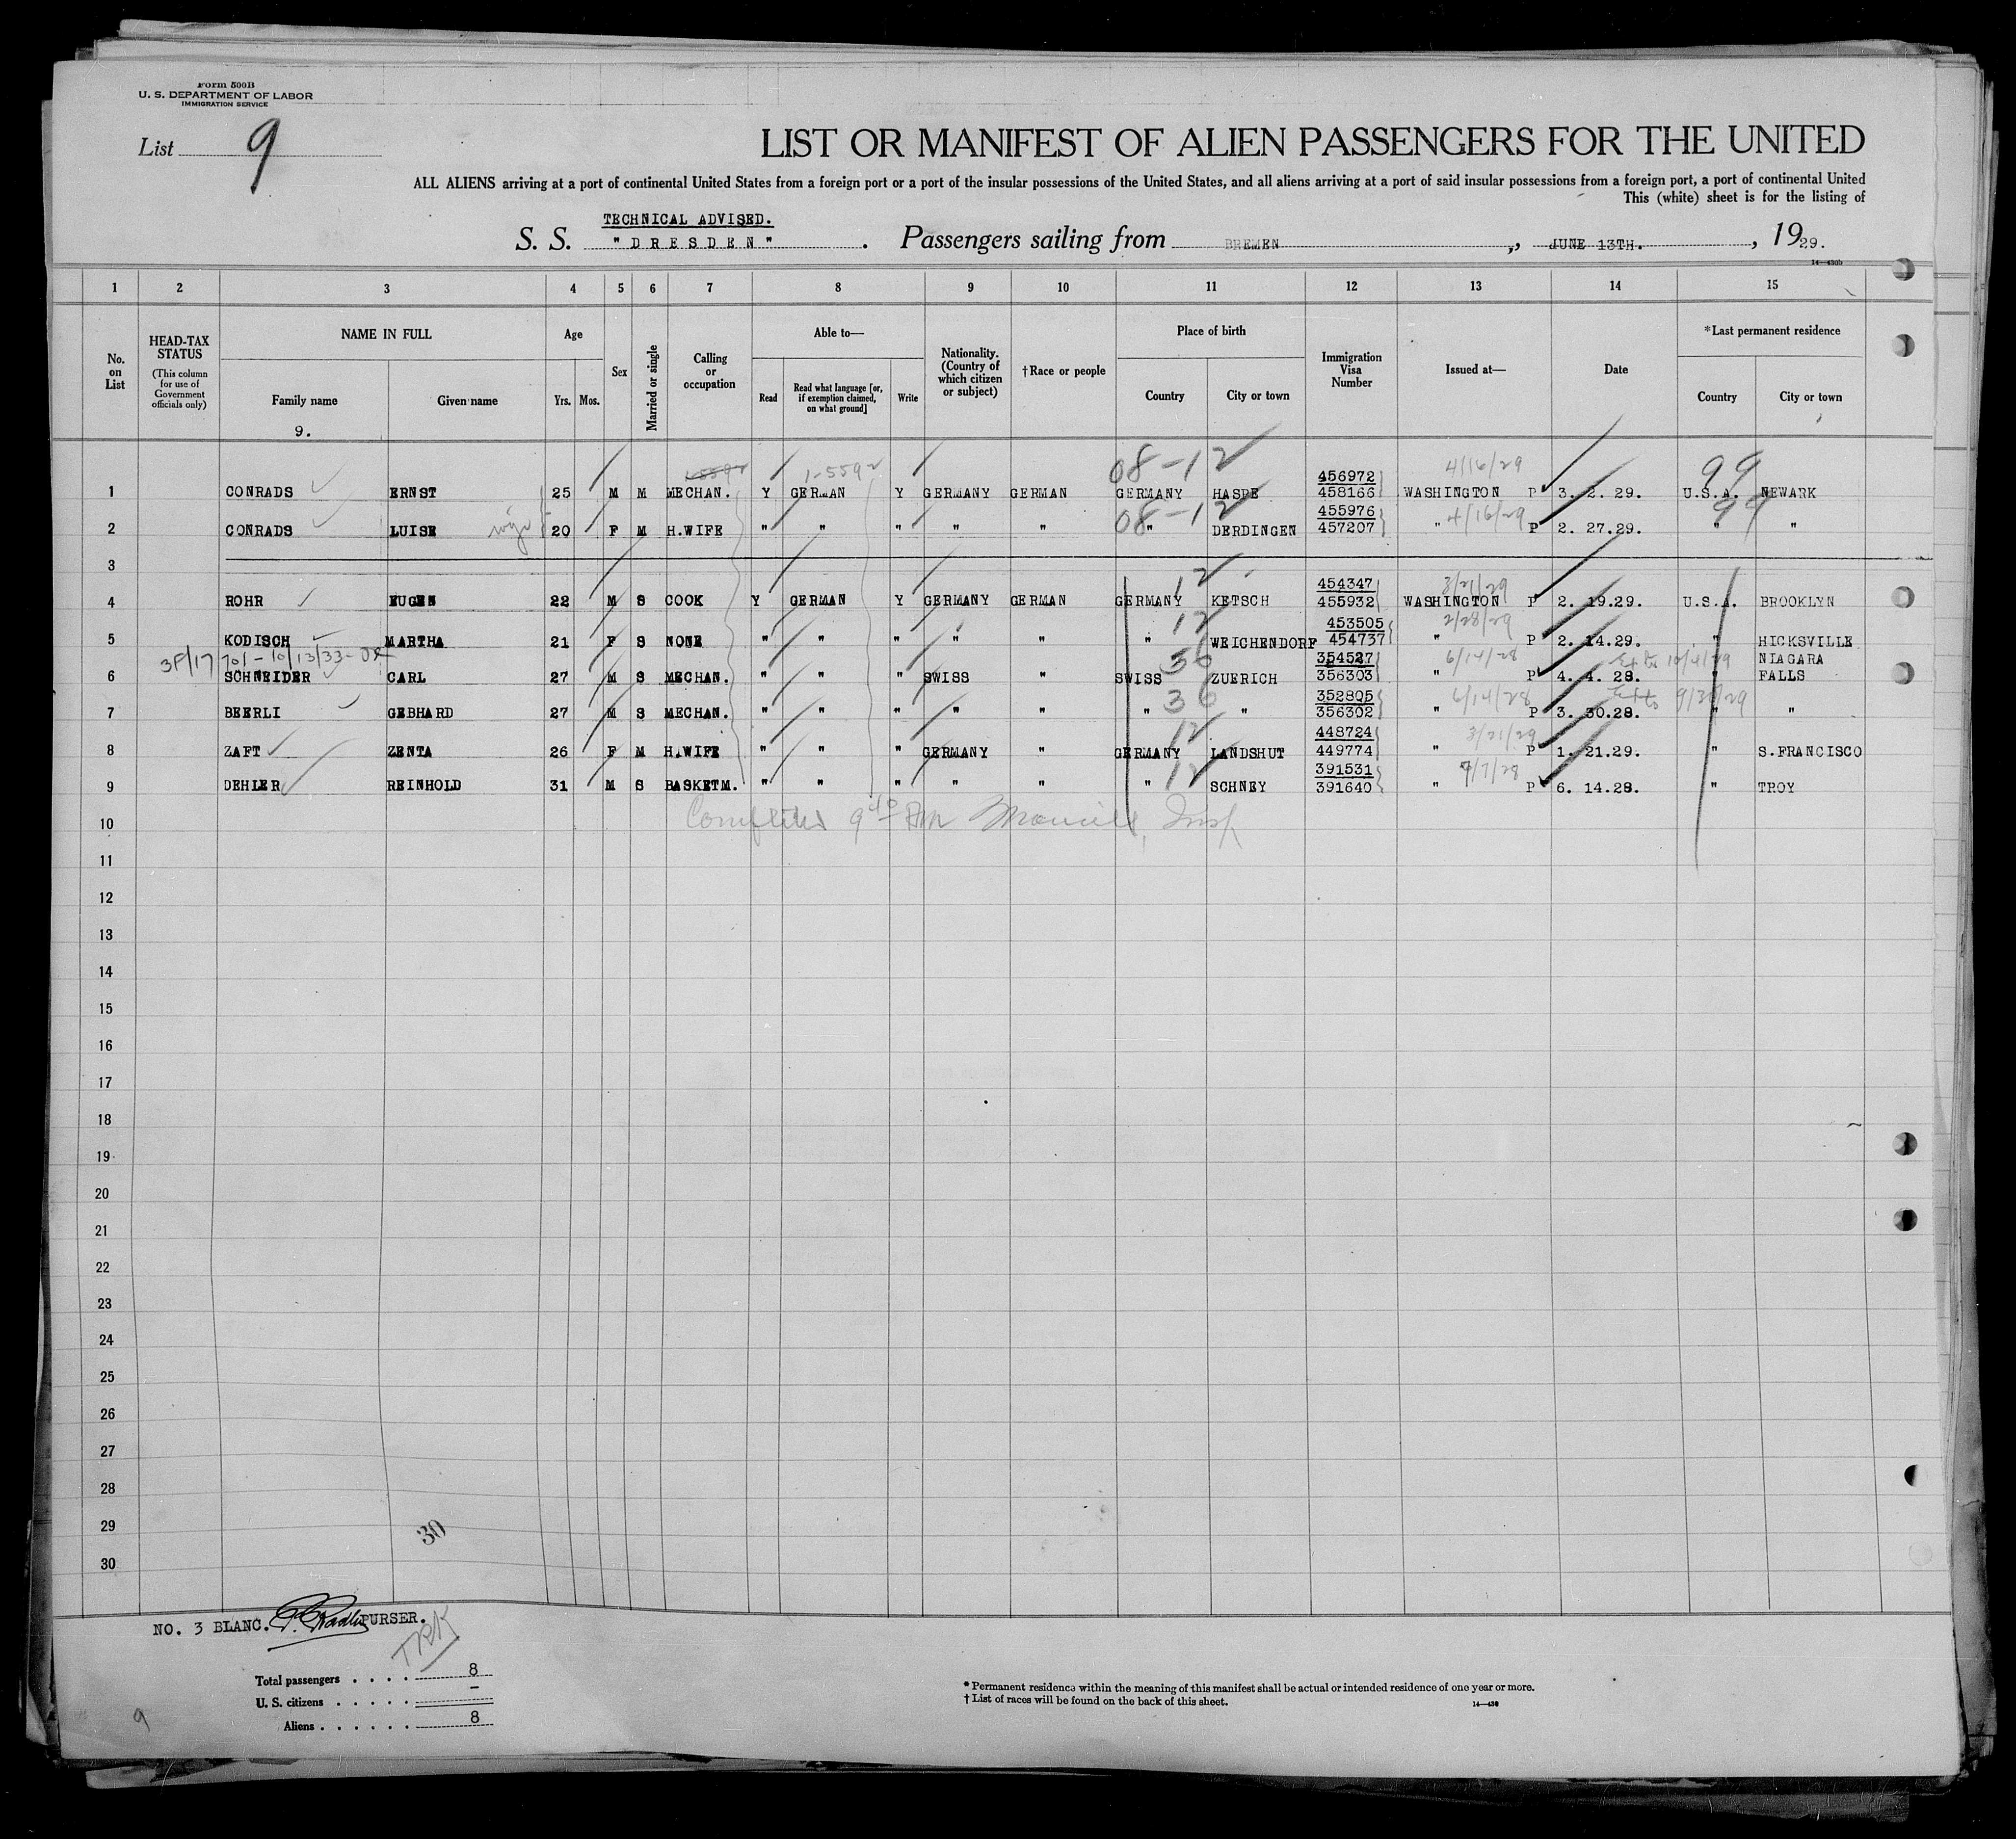 Form 500B
U. S. DEPARTMENT OF LABOR
IMMIGRATION SERVICE
List 9
LIST OR MANIFEST OF ALIEN PASSENGERS FOR THE UNITED
ALL ALIENS arriving at a port of continental United States from a foreign port or a port of the insular possessions of the United States, and all aliens arriving at a port of said insular possessions from a foreign port, a port of continental United
This (white) sheet is for the listing of
TECHNICAL ADVISED.
S. S. "DRESDEN". Passengers sailing from BREMEN, JUNE 13TH., 1929.
14—430b
1 2 3 4 5 6 7 8 9 10 11 12 13 14 15
No. on List
HEAD-TAX STATUS
(This column for use of Government officials only)
NAME IN FULL
Family name
Given name
Age
Yrs. Mos.
Sex
Married or single
Calling or occupation
Able to—
Read
Read what language [or, if exemption claimed, on what ground]
Write
Nationality. (Country of which citizen or subject)
†Race or people
Place of birth
Country
City or town
Immigration Visa Number
Issued at—
Date
*Last permanent residence
Country
City or town
9.
1-5592 1-5592 08-12 4/16/29 99
456972
1 CONRADS ERNST 25 M M MECHAN. Y GERMAN Y GERMANY GERMAN GERMANY HASPE 458166 WASHINGTON P 3. 2. 29. U.S.A. NEWARK
455976
08-12 4/16/29 99
2 CONRADS LUISE wife 20 F M H.WIFE " " " " " " DERDINGEN 457207 " P 2. 27.29. " "
3
12 454347 3/21/29
4 ROHR EUGEN 22 M S COOK Y GERMAN Y GERMANY GERMAN GERMANY KETSCH 455932 WASHINGTON P 2. 19.29. U.S.A. BROOKLYN
12 453505 2/28/29
5 KODISCH MARTHA 21 F S NONE " " " " " " WEICHENDORF 454737 " P 2. 14.29. " HICKSVILLE
3F/17701-10/13/33- 36 354527 6/14/28 10/4/29 NIAGARA
6 SCHNEIDER CARL 27 M S MECHAN. " " " SWISS " SWISS ZUERICH 356303 " P 4. 4. 28. " FALLS
36 352805 6/14/28
7 BEERLI GEBHARD 27 M S MECHAN. " " " " " " " 356302 " P 3. 30.28. " "
12 448724 3/21/29
8 ZAFT ZENTA 26 F M H.WIFE " " " GERMANY " GERMANY LANDSHUT 449774 " P 1. 21.29. " S.FRANCISCO
12 391531 7/7/28
9 DEHLER REINHOLD 31 M S BASKETM. " " " " " " SCHNEY 391640 " P 6. 14.28. " TROY
10
11
12
13
14
15
16
17
18
19
20
21
22
23
24
25
26
27
28
29
30
30
NO. 3 BLANC. PURSER.
Total passengers . . . . 8
U. S. citizens . . . . . –
Aliens . . . . . . 8
9
* Permanent residence within the meaning of this manifest shall be actual or intended residence of one year or more.
† List of races will be found on the back of this sheet.
14—430